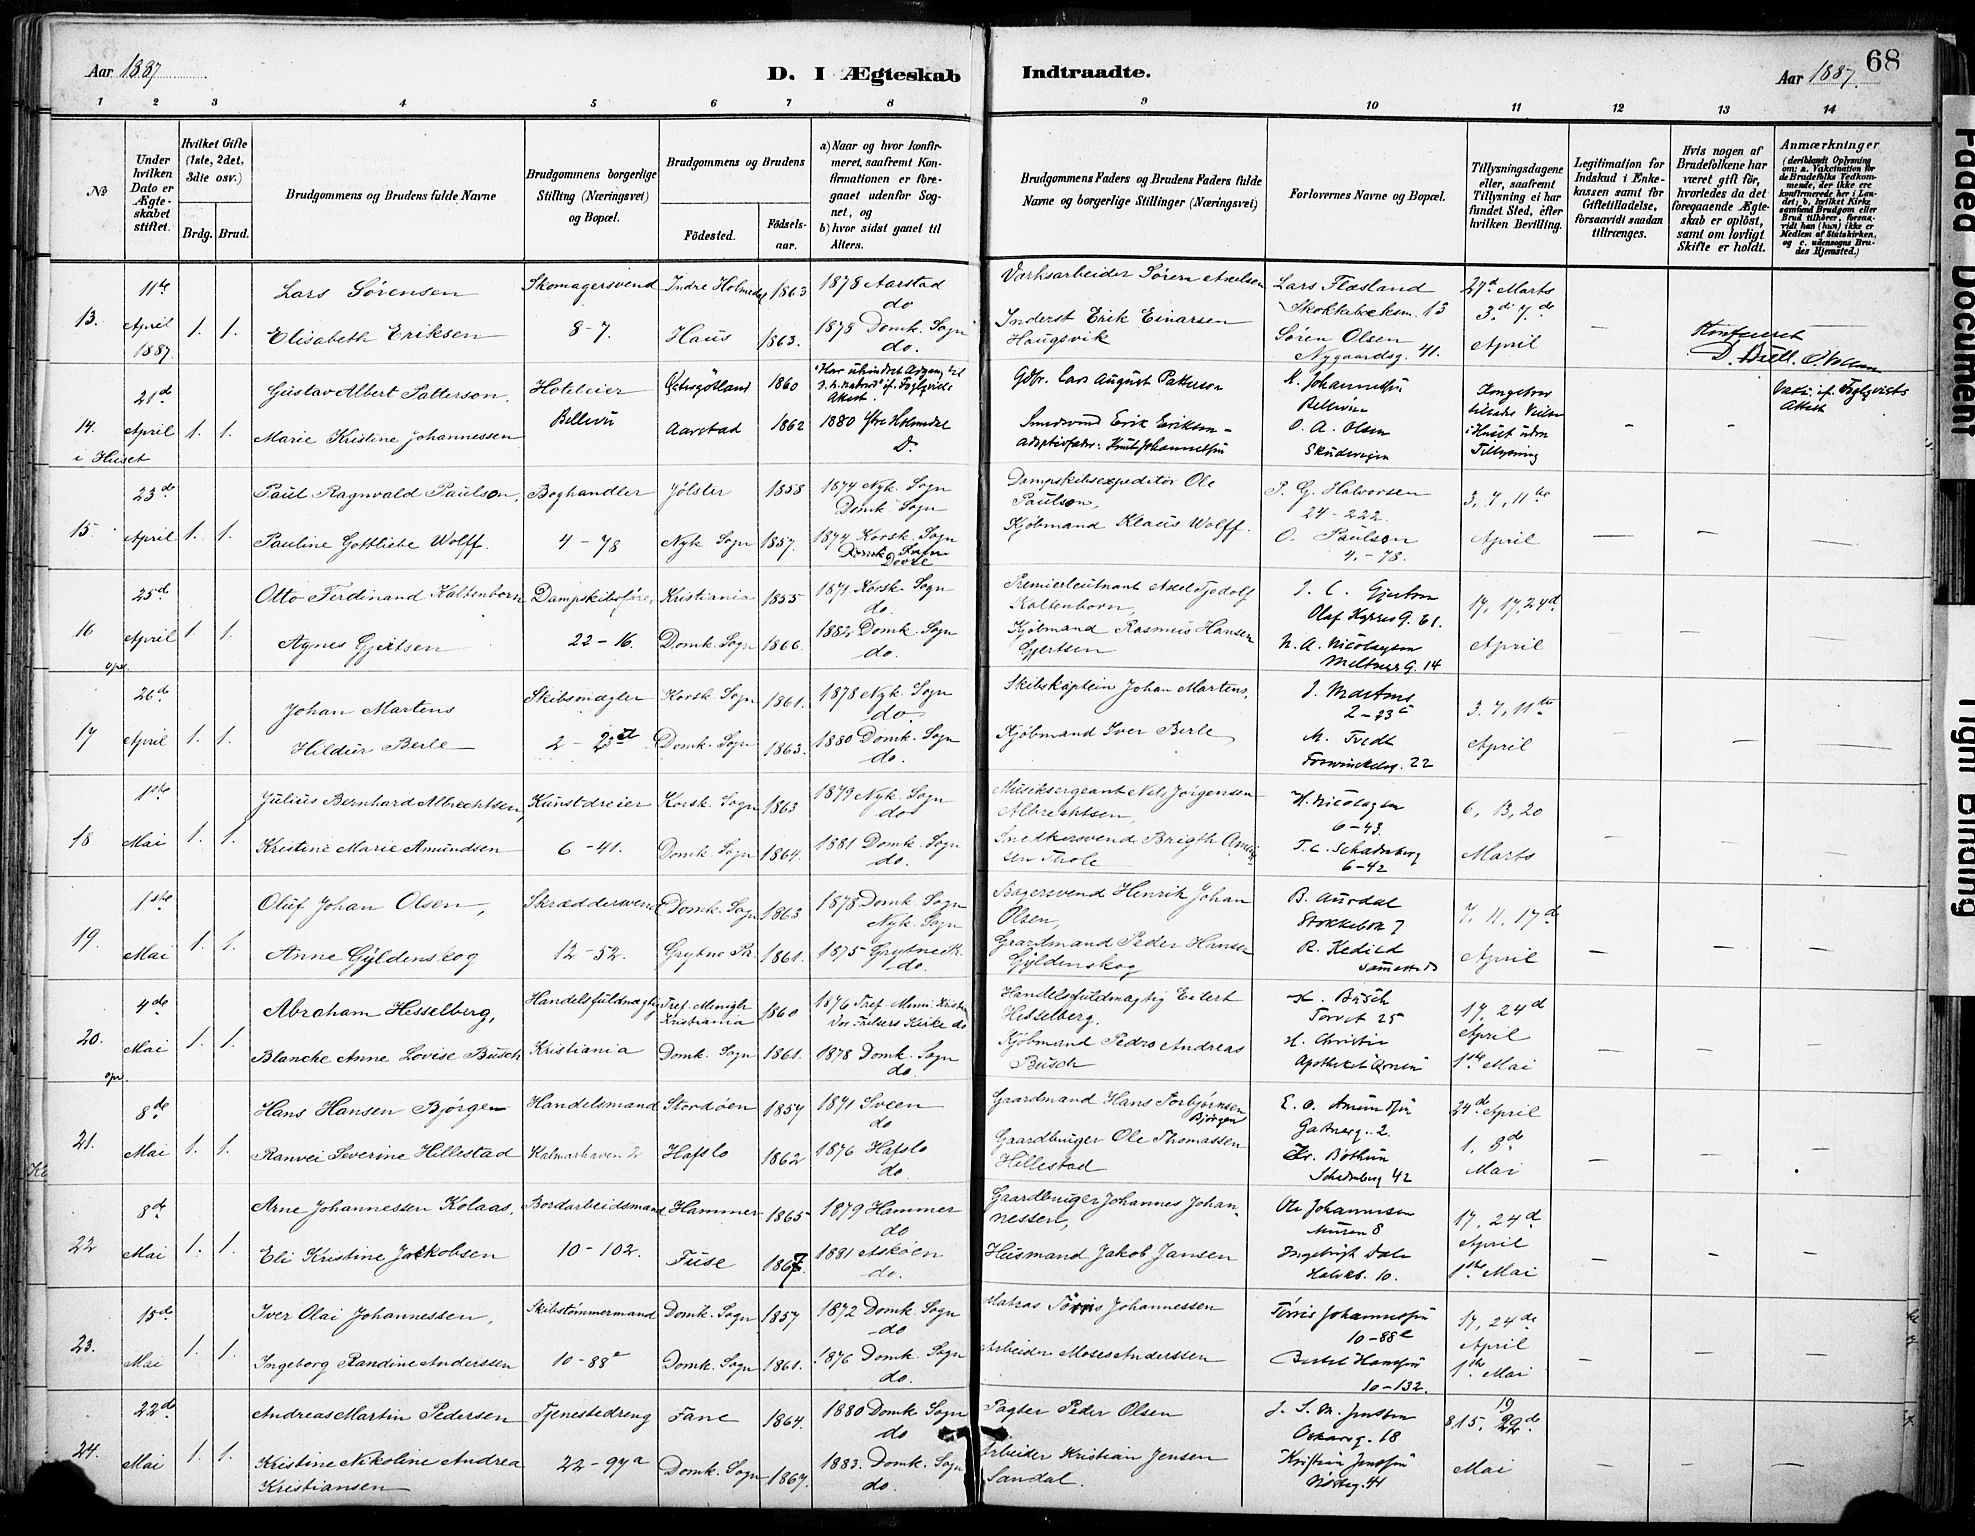 68
Aar 1887
D. I Ægteskab Indtraadte.
Aar 1887.
1 2 3 4 5 6 7 8 9 10 11 12 13 14
No
Under hvilken Dato er Ægteskabet stiftet.
Hvilket Gifte (1ste, 2det, 3die osv.)
Brdg. Brud.
Brudgommens og Brudens fulde Navne
Brudgommens borgerlige Stilling (Næringsvei) og Bopæl.
Brudgommens og Brudens
Fødested. Fødselsaar.
a) Naar og hvor konfirmeret, saafremt Konfirmationen er foregaaet udenfor Sognet, og
b) hvor sidst gaaet til Alters.
Brudgommens Faders og Brudens Faders fulde Navne og borgerlige Stillinger (Næringsvei)
Forlovernes Navne og Bopæl.
Tillysningsdagene eller, saafremt Tillysning ei har fundet Sted, efter hvilken Bevilling.
Legitimation for Indskud i Enkekassen samt for Giftetilladelse, forsaavidt saadan tiltrænges.
Hvis nogen af Brudefolkene har været gift før, hvorledes da det foregaaende Ægteskab er opløst, samt om lovligt Skifte er holdt.
Anmærkninger
(deriblandt Oplysning om: a. Vakcination for de Brudefolks Vedkommende, der ikke ere konfirmerede her i Landet; b. hvilket Kirkesamfund Brudgom eller Brud tilhører, forsaavidt han (hun) ikke er Medlem af Statskirken, og c. udensogns Brudes Hjemsted.)
13. 11te April 1887 1. 1.
Lars Sørensen Skomagersvend Indre Holmedal 1863 1878 Aarstad do
Værksarbeider Søren Axelsen Lars Flæsland Skokkebæksm. 13 27d Marts
Elisabeth Eriksen 8-7. Haus 1863. 1878 Domk. Sogn do.
Inderst Erik Einarsen Haugsvik Søren Olsen Nygaardsg. 41. 3.di 7.de April
14. 21d April i Huset 1. 1.
Gustav Albert Patterson, Hoteleier Østergötland 1860
Gdbr. Lars August Patterson K. Johannessen Bellevue
Marie Kristine Johannessen Bellevü Aarstad 1862 1880 Ytre Holmedal D.
Smedsvend Erik Eriksen - Adoptivfader: Knut Johannessen O. A. Olsen Skudevigen
i Huset uden Tillysning
15. 23d April 1. 1.
Paul Ragnvald Paulson, Boghandler Jølster 1858 1874 Nyk. Sogn Domk. Sogn
Dampskibsexpeditör Ole Paulson, P. G. Halvorsen 24-222. 3, 7, 11te
Pauline Gottliebe Wolff. 4-78 Nyk. Sogn 1857. 1874 Korsk. Sogn
Kjøbmand Klaus Wolff. O. Paulson 4.-78. April
16 25d April 1. 1.
Otto Ferdinand Kaltenborn Dampskibsføre, Kristiania 1855 1871 Korsk. Sogn do.
Premierleutnant Axel Fredolf Kaltenborn, J. C. Gjertsen Olaf Kyrres G. 61. 17, 17, 24d
Agnes Gjertsen 22-16. Domk. Sogn 1866. 1882 Domk. Sogn do.
Kjøbmand Rasmus Hansen Gjertsen N. A. Nicolaysen Meltzers G. 14 April
17 26d April 1. 1.
Johan Martens Skibsmægler Korsk. Sogn 1861. 1878 Nyk. Sogn do.
Skibskaptein Johan Martens, J. Martens 2-23c 3. 7, 11te
Hildur Berle 2-23d Domk. Sogn 1863. 1880 Domk. Sogn do.
Kjøbmand Iver Berle M. Tvedt Foswinckelsg. 22 April
18 1ste Mai 1. 1.
Julius Bernhard Albrechtsen, Kunstdreier Korsk. Sogn 1863 1879 Nyk. Sogn do
Musiksergeant Nils Jørgensen Albrechtsen, H. Nicolaysen 6-43. 6, 13, 20
Kristine Marie Amundsen 6-41. Domk. Sogn 1864. 1881 Domk. Sogn do.
Snedkersvend Brigth Amundsen Thole T. C. Schattenberg 6-42 Marts
19. 1ste Mai 1. 1.
Oluf Johan Olsen, Skræddersvend Domk. Sogn 1863 1878 Domk. Sogn Nyk. Sogn
Bagersvend Henrik Johan Olsen, B. Aurdal 7, 11, 17d
Anne Gyldenskog 12-52. Grytne Pr. 1861. 1875 Grytne Pr. do.
Gaardmand Peder Hansen Gyldenskog April
20. 4de Mai 1. 1.
Abraham Hesselberg, Handelsfuldmægtig Tref. Menigh Kristiania 1860 1876 Tref. Men. Kristia Vor Frelsers Kirke do
Handelsfuldmægtig Eilert Hesselberg. H. Busch Torvet 25 17, 24d April
Blanche Anne Lovise Busch Kristiania Domk. Sogn 1861. 1878 Domk. Sogn do.
Kjøbmand Pedro Andreas Busch H. Christie 1ste Mai
21. 8de Mai 1. 1.
Hans Hansen Bjørgen Handelsmand Stordøen 1854 1871 Sveen do
Gaardmand Hans Torbjørnsen Bjørgen E. O. Amundsen 24de April
Ranvei Severine Hillestad Kalmarhaven 2 Hafslo 1862 1876 Hafslo do
Gaardbruger Ole Thomassen Hillestad Chr. Bothun 42 1, 8de Mai
22 8de Mai 1. 1.
Arne Johannessen Kolaas, Bordarbeidsmand Hammer 1865 1879 Hammer do
Gaardbruger Johannes Johannessen, Ole Johannessen Muren 8 17, 24d April
Eli Kristine Jakobsen 10-102. Fuse 1867. 1881 Askøen do.
Husmand Jakob Jansen Ingebrigt Dale 10. 1ste Mai
23. 15d Mai 1. 1.
Iver Olai Johannessen, Skibstømmermand Domk. Sogn 1857 1872 Domk. Sogn do
Matros Tørris Johannessen Tørris Johannessen 10-88e 17, 24de April
Ingeborg Randine Anderssen 10-88e Domk. Sogn 1861. 1876 Domk. Sogn do.
Arbeider Moses Anderssen Bertel Hanssen 10-132. 1ste Mai
24. 22de Mai 1. 1.
Andreas Martin Pedersen Tjenestedreng Fane 1864. 1880 Domk. Sogn do
Pagter Peder Olsen J. S. M. Jenssen Oscarsg. 18 8, 15, 19 22de
Kristine Nikoline Andrea Kristiansen 22-97a Domk. Sogn 1867. 1883. Domk. Sogn do.
Arbeider Kristian Jensen Sandal. Kristian Jenssen 41 Mai
Faded Document
Tight Binding